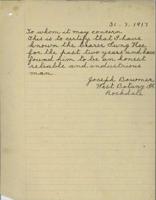 31. 7. 1917
To whom it may concern
This is to certify that I have
known the bearer Sung Hee
for the past two years and have
found him to be an honest
reliable and industrious
man.
Joseph Bowmer
West Botany St
Rockdale